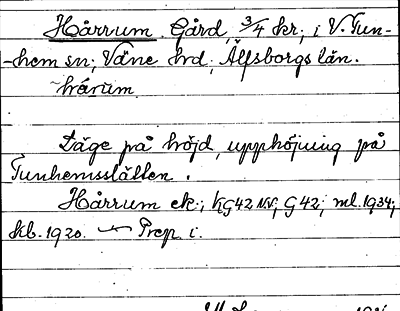 Hårrum. Gård, 3/4 kr; i V. Tun-
-hem sn; Väne hrd, Älfsborgs län.
hårum
Läge på höjd, upphöjning på
Tunhemsslätten.
Hårrum ek.; KG42NV; G42; ml. 1934;
Kb. 1920. Prep. i.